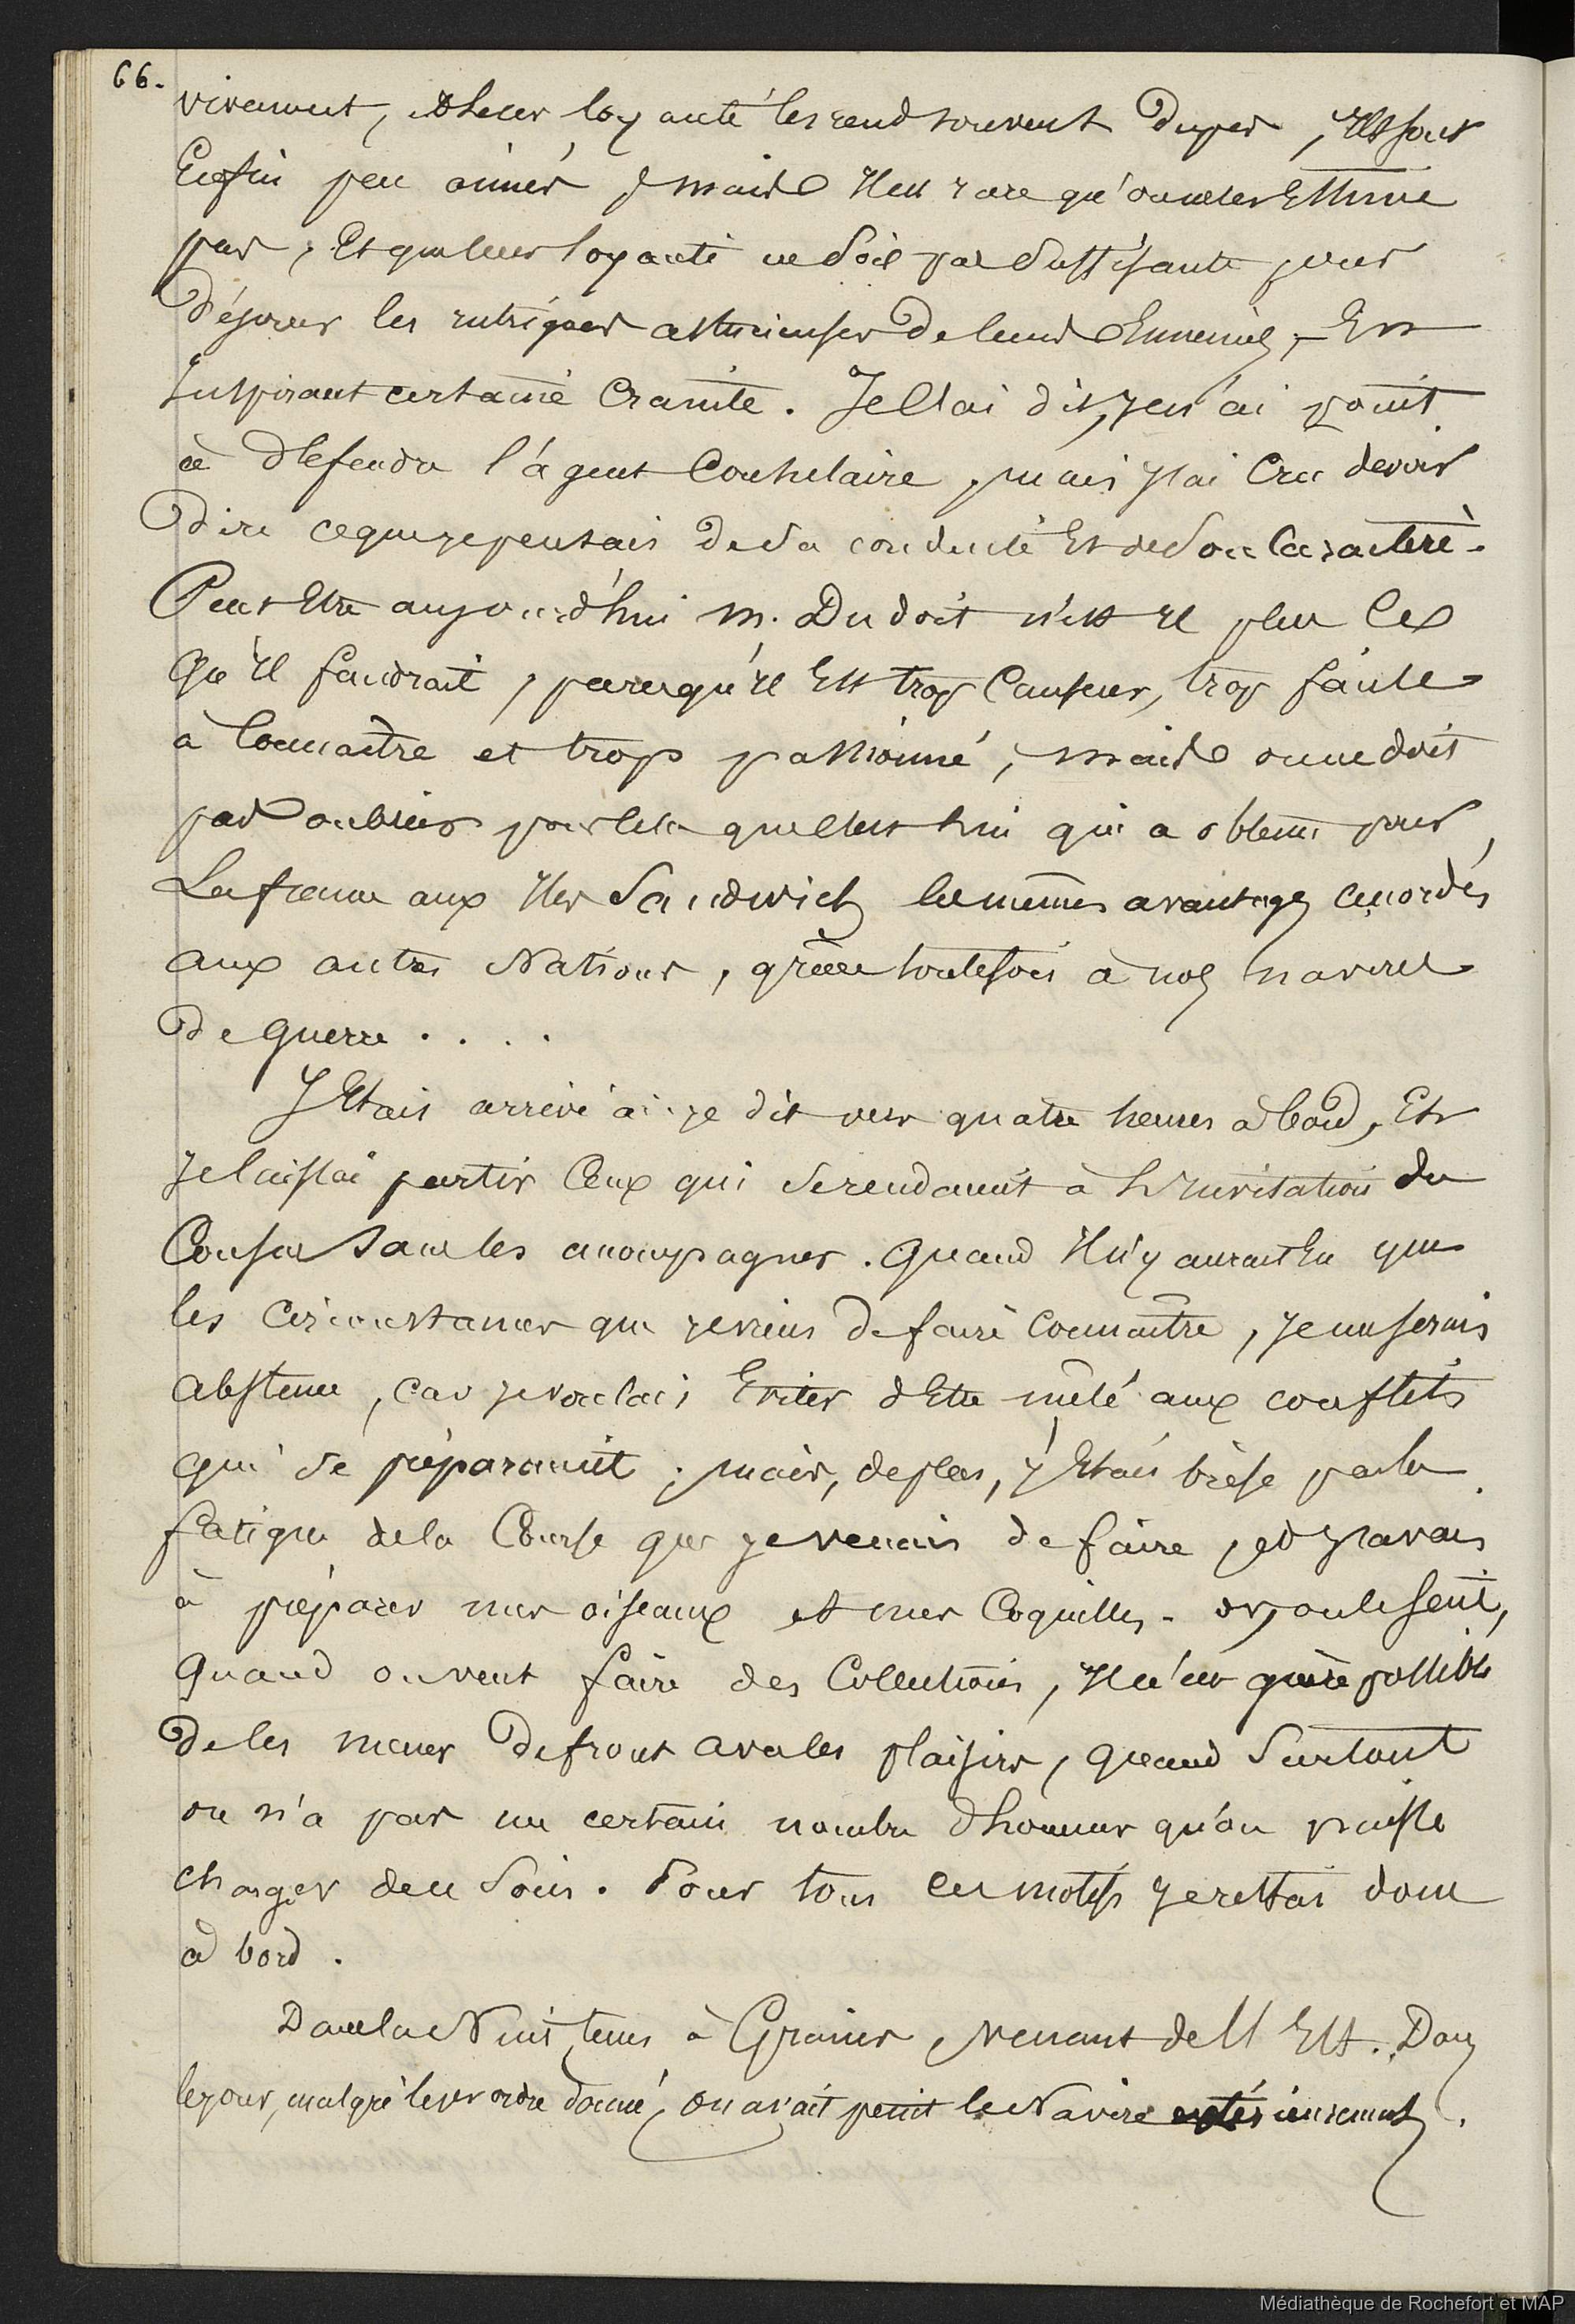 66.
vivement, et leur loyauté les rend souvent dupes, Ils sont
Enfin peu aimés, mais Il est rare qu'on ne les Estime
pas, Et que leur loyauté ne soit pas suffisante pour
Déjouer les intrigues astucieuses De leurs Ennemis, En
Inspirant certaine Crainte. Je l'ai dit, je n'ai point
à défendre l'agent Consulaire, mais j'ai Cru devoir
Dire ce que je pensais De sa conduite Et de son Caractère.
Peut Etre aujourd'hui M. Dudoit n'est Il plus Ce
qu'Il faudrait, parce qu'Il Est trop Causeur, trop facile
à Connaître et trop passionné, mais on ne doit
pas oublier que c'est lui qui a obtenu pour
La france aux Iles Sandwich les mêmes avantages accordés
aux autres Nations, grâce toutefois à nos navires
De guerre . . . .
J'Etais arrivé ai-je dit vers quatre heures à bord, Et
Je laissai partir Ceux qui se rendaient à l'Invitation du
Consul sans les accompagner. Quand Il n'y aurait Eu que
les Circonstances que je viens De faire Connaître, je me serais
abstenu, car je voulais Eviter d'Etre mêlé aux conflits
qui se préparaient ; mais, de plus, j'Etais brisé par la
fatigue de la Course que je venais de faire, et j'avais
à préparer mes oiseaux et mes Coquilles. or, on le sent,
Quand on veut faire des Collections, Il n'est guère possible
De les mener De front avec les plaisirs, quand Surtout
on n'a pas un certain nombre d'hommes qu'on puisse
charger de ce soin. Pour tous ces motifs je restai donc
à bord.
Dans la Nuit, tems à Grains, venant de l'Est. Dans
le jour, malgré l'ordre donné, on avait peint le Navire extérieurement.
Médiathèque de Rochefort et MAP